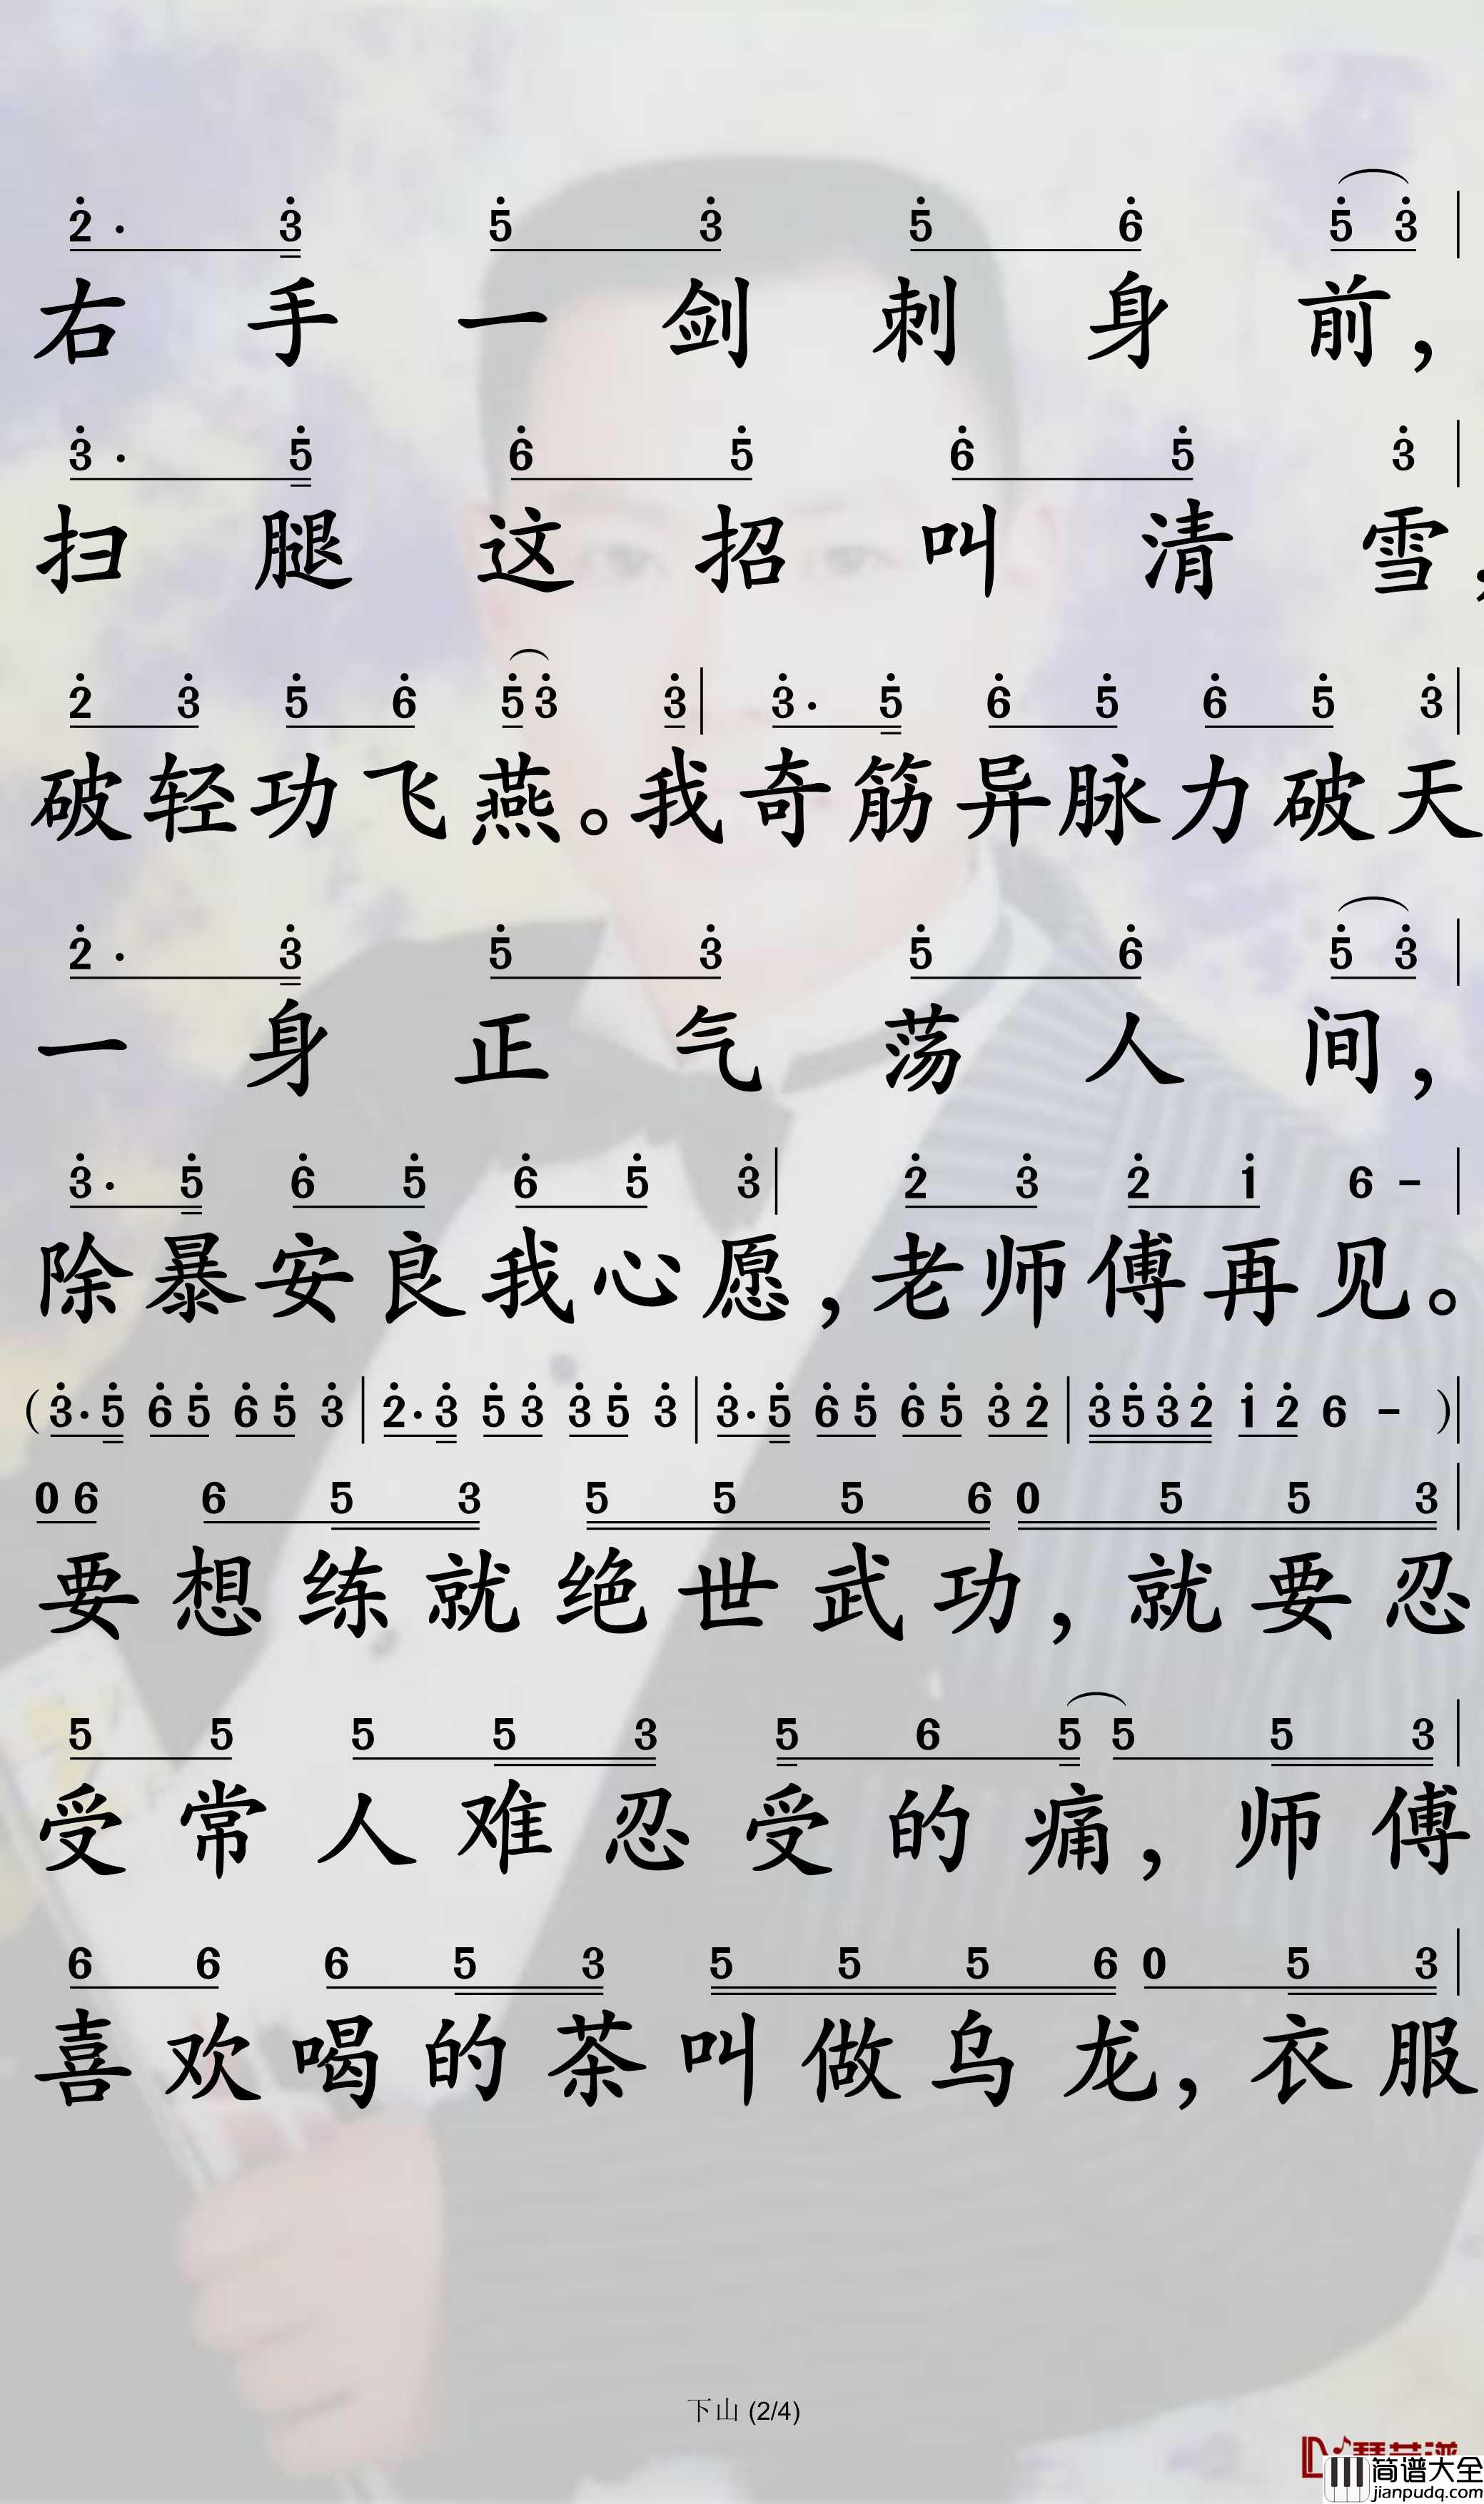 2̇· 3̇ 5̇ 3̇ 5̇ 6̇ 5̇ 3̇ |
右手一剑刺身前，
3̇· 5̇ 6̇ 5̇ 6̇ 5̇ 3̇ |
扫腿这招叫清雪，
2̇ 3̇ 5̇ 6̇ 5̇ 3̇ 3̇ | 3̇· 5̇ 6̇ 5̇ 6̇ 5̇ 3̇ |
破轻功飞燕。我奇筋异脉力破天
2̇· 3̇ 5̇ 3̇ 5̇ 6̇ 5̇ 3̇ |
一身正气荡人间，
3̇· 5̇ 6̇ 5̇ 6̇ 5̇ 3̇ | 2̇ 3̇ 2̇ 1̇ 6 - |
除暴安良我心愿，老师傅再见。
(3̇· 5̇ 6̇ 5̇ 6̇ 5̇ 3̇ | 2̇· 3̇ 5̇ 3̇ 3̇ 5̇ 3̇ | 3̇· 5̇ 6̇ 5̇ 6̇ 5̇ 3̇ 2̇ | 3̇ 5̇ 3̇ 2̇ 1̇ 2̇ 6 - ) |
0 6 6 5 3 5 5 5 6 0 5 5 3 |
要想练就绝世武功，就要忍
5 5 5 5 3 5 6 5 5 5 3 |
受常人难忍受的痛，师傅
6 6 6 5 3 5 5 5 6 0 5 3 |
喜欢喝的茶叫做乌龙，衣服
下山 (2/4)
简谱大全
jianpudq.com